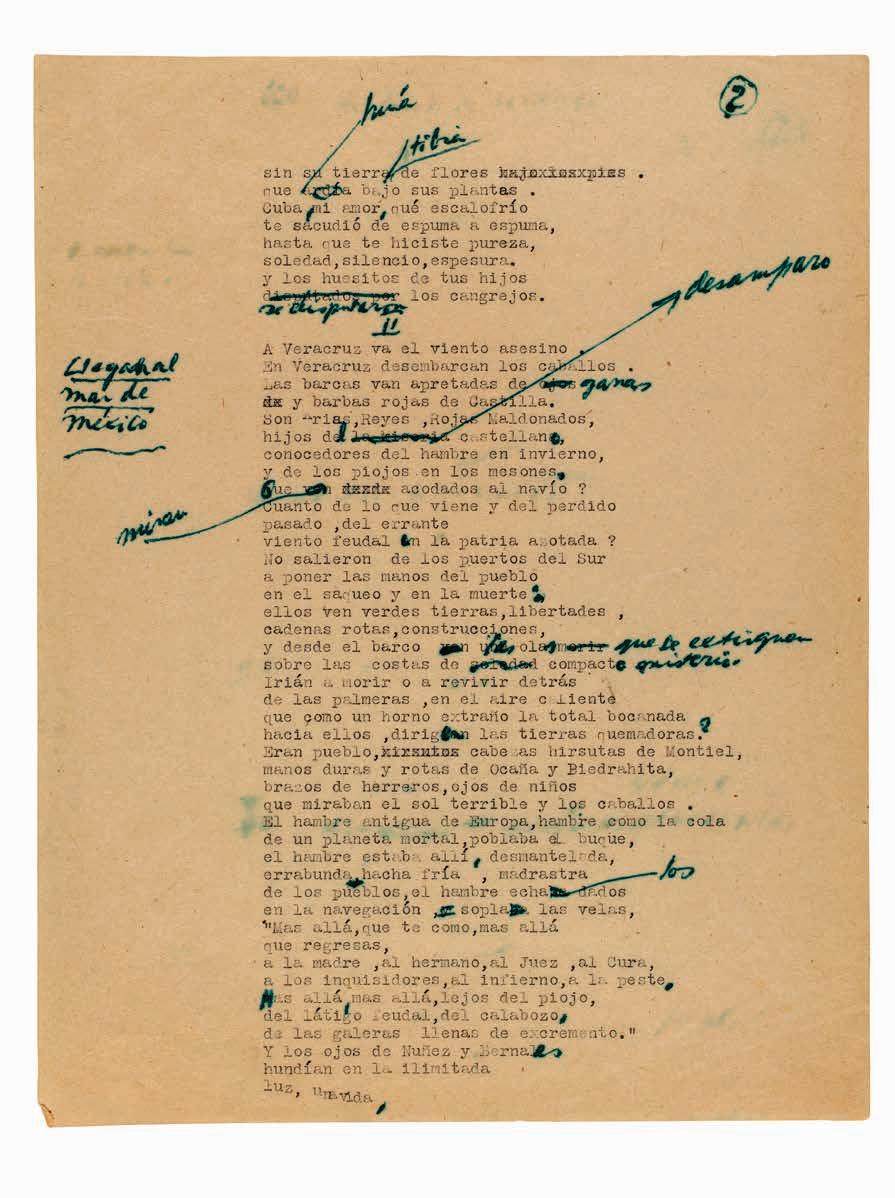 2
huía
tibia
sin su tierra de flores bajo los pies .
que ardía bajo sus plantas .
Cuba, mi amor, qué escalofrío
te sacudió de espuma a espuma,
hasta que te hiciste pureza,
soledad,silencio,espesura.
y los huesitos de tus hijos
disputados por los cangrejos.
se disputaron
II
desamparo
Llegan al
mar de
México
A Veracruz va el viento asesino .
En Veracruz desembarcan los caballos .
Las barcas van apretadas de ojos garras
de y barbas rojas de Castilla.
Son Arias,Reyes ,Rojas Maldonados,
hijos del la miseria castellano,
conocedores del hambre en invierno,
y de los piojos en los mesones.
Que ven desde acodados al navío ?
miran
Cuanto de lo que viene y del perdido
pasado ,del errante
viento feudal en la patria azotada ?
No salieron de los puertos del Sur
a poner las manos del pueblo
en el saqueo y en la muerte:
ellos ven verdes tierras,libertades ,
cadenas rotas,construcciones,
y desde el barco olas morir que se extinguen
sobre las costas de soledad compacto misterio.
Irián a morir o a revivir detrás
de las palmeras ,en el aire caliente
que como un horno extraño la total bocanada
hacia ellos ,dirigían las tierras quemadoras.?
Eran pueblo, cabezas hirsutas de Montiel,
manos duras y rotas de Ocaña y Piedrahita,
brazos de herreros,ojos de niños
que miraban el sol terrible y los caballos .
El hambre antigua de Europa,hambre como la cola
de un planeta mortal,poblaba el buque,
el hambre estaba allí, desmantelada,
errabunda hacha fría , madrastra
los
de los pueblos,el hambre echaba dados
en la navegación , soplaba las velas,
"Mas allá,que te como,mas allá
que regresas,
a la madre ,al hermano,al Juez ,al Cura,
a los inquisidores,al infierno,a la peste,
Mas allá,mas allá,lejos del piojo,
del látigo feudal,del calabozo,
de las galeras llenas de excremento."
Y los ojos de Nuñez y Bernales
hundían en la ilimitada
luz, una vida,